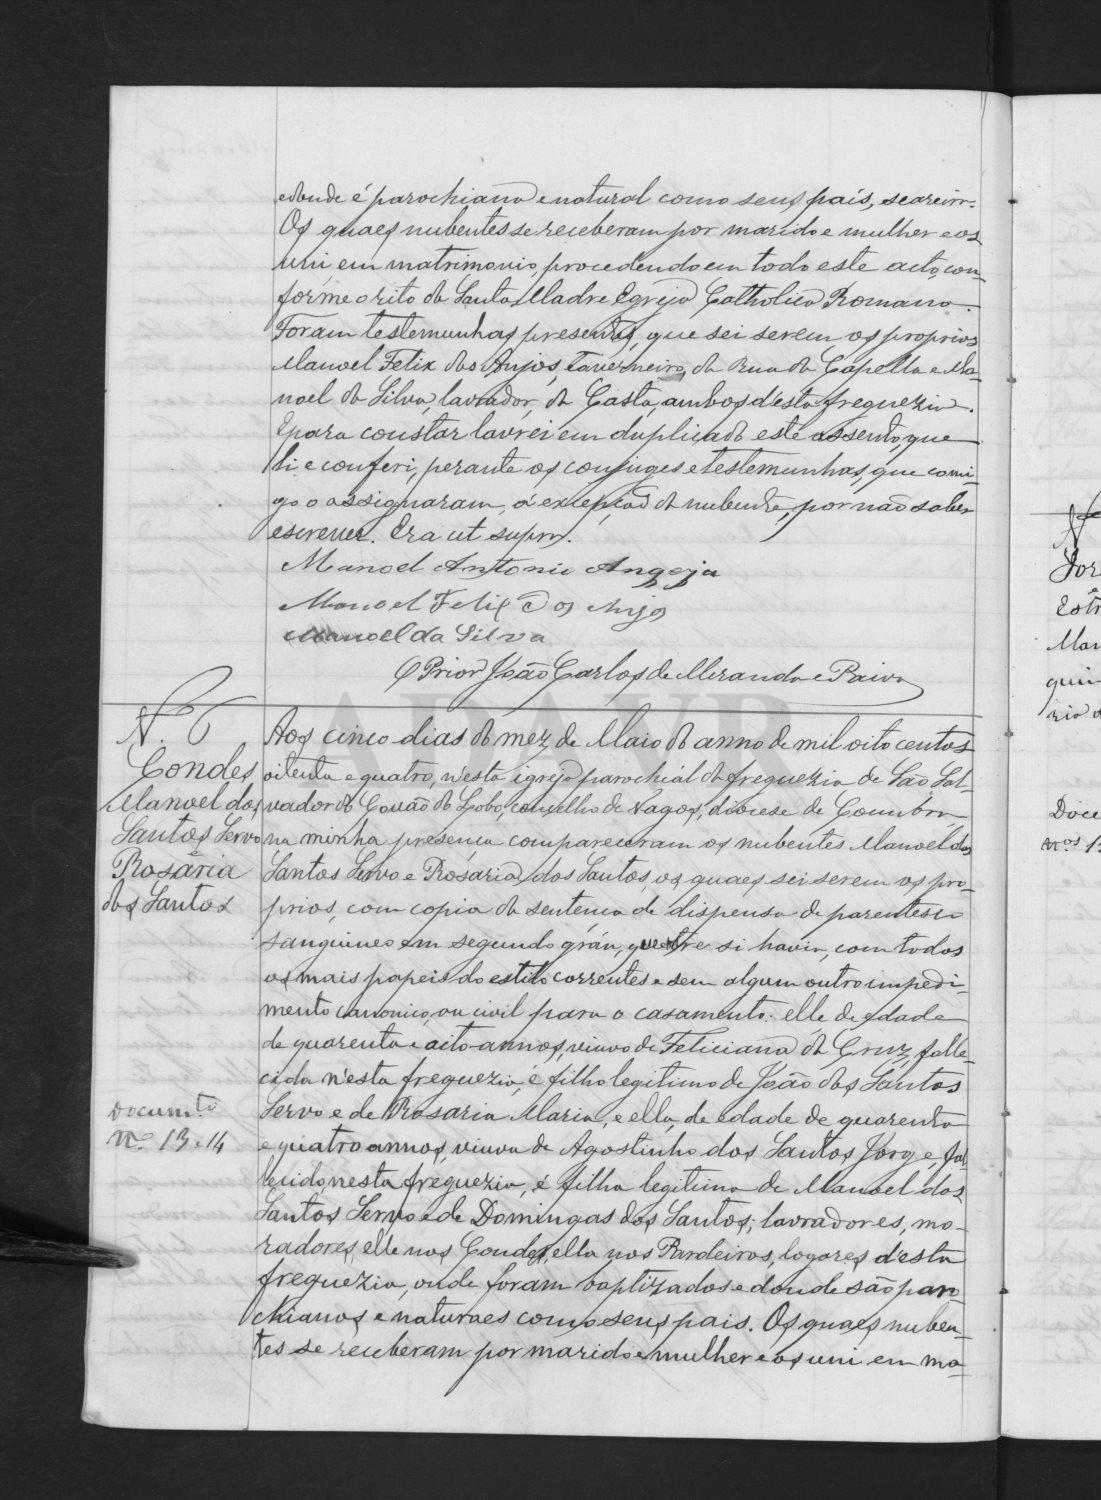 edonde é parochiana e natural como seus pais, seareira.
Os quaes nubentes se receberam por marido e mulher e os
uni em matrimonio, procedendo em todo este acto, con-
forme o rito da Santa Madre Egreja Catholica Romana.
Foram testemunhas presentes, que sei serem os proprios
Manoel Felix dos Anjos, taverneiro, da Rua da Capella e Ma-
noel da Silva, lavrador, da Gasta, ambos d'esta freguezia.
E para constar lavrei em duplicado este assento, que
li e conferi, perante os conjuges e testemunhas, que comi-
go o assignaram, á excepção da nubente, por não saber
escrever. Era ut supra.
Manoel Antonio Angeja
Manoel Felix Dos Anjos
Manoel da Silva
O Prior João Carlos de Miranda e Paiva
ADAVR
N. 6
Condes
Manoel dos
Santos Servo
e
Rosaria
dos Santos
Documto
Nos 13 e 14
Aos cinco dias do mez de Maio do anno de mil oito centos
oitenta e quatro, n'esta igreja parochial da freguezia de São Sal-
vador do Covão do Lobo, concelho de Vagos, diocese de Coimbra
na minha presença compareceram os nubentes Manoel dos
Santos Servo e Rosaria dos Santos, os quaes sei serem os pro-
prios, com copia da sentença de dispensa de parentesco
sanguineo em segundo gráu, que entre si havia, com todos
os mais papeis do estilo correntes e sem algum outro impedi-
mento canonico, ou civil para o casamento: elle de edade
de quarenta e oito annos, viuvo de Feliciana da Cruz, falle-
cida n'esta freguezia, é filho legitimo de João dos Santos
Servo e de Rosaria Maria, e ella, de edade de quarenta
e quatro annos, viuva de Agostinho dos Santos Jorge, fal-
lecido nesta freguezia, é filha legitima de Manoel dos
Santos Servo e de Domingas dos Santos; lavradores, mo-
radores, elle nos Condes, ella nos Pardeiros, logares d'esta
freguezia, onde foram baptizados e donde são paro-
chianos e naturaes como seus pais. Os quaes nuben-
tes se receberam por marido e mulher e os uni em ma-